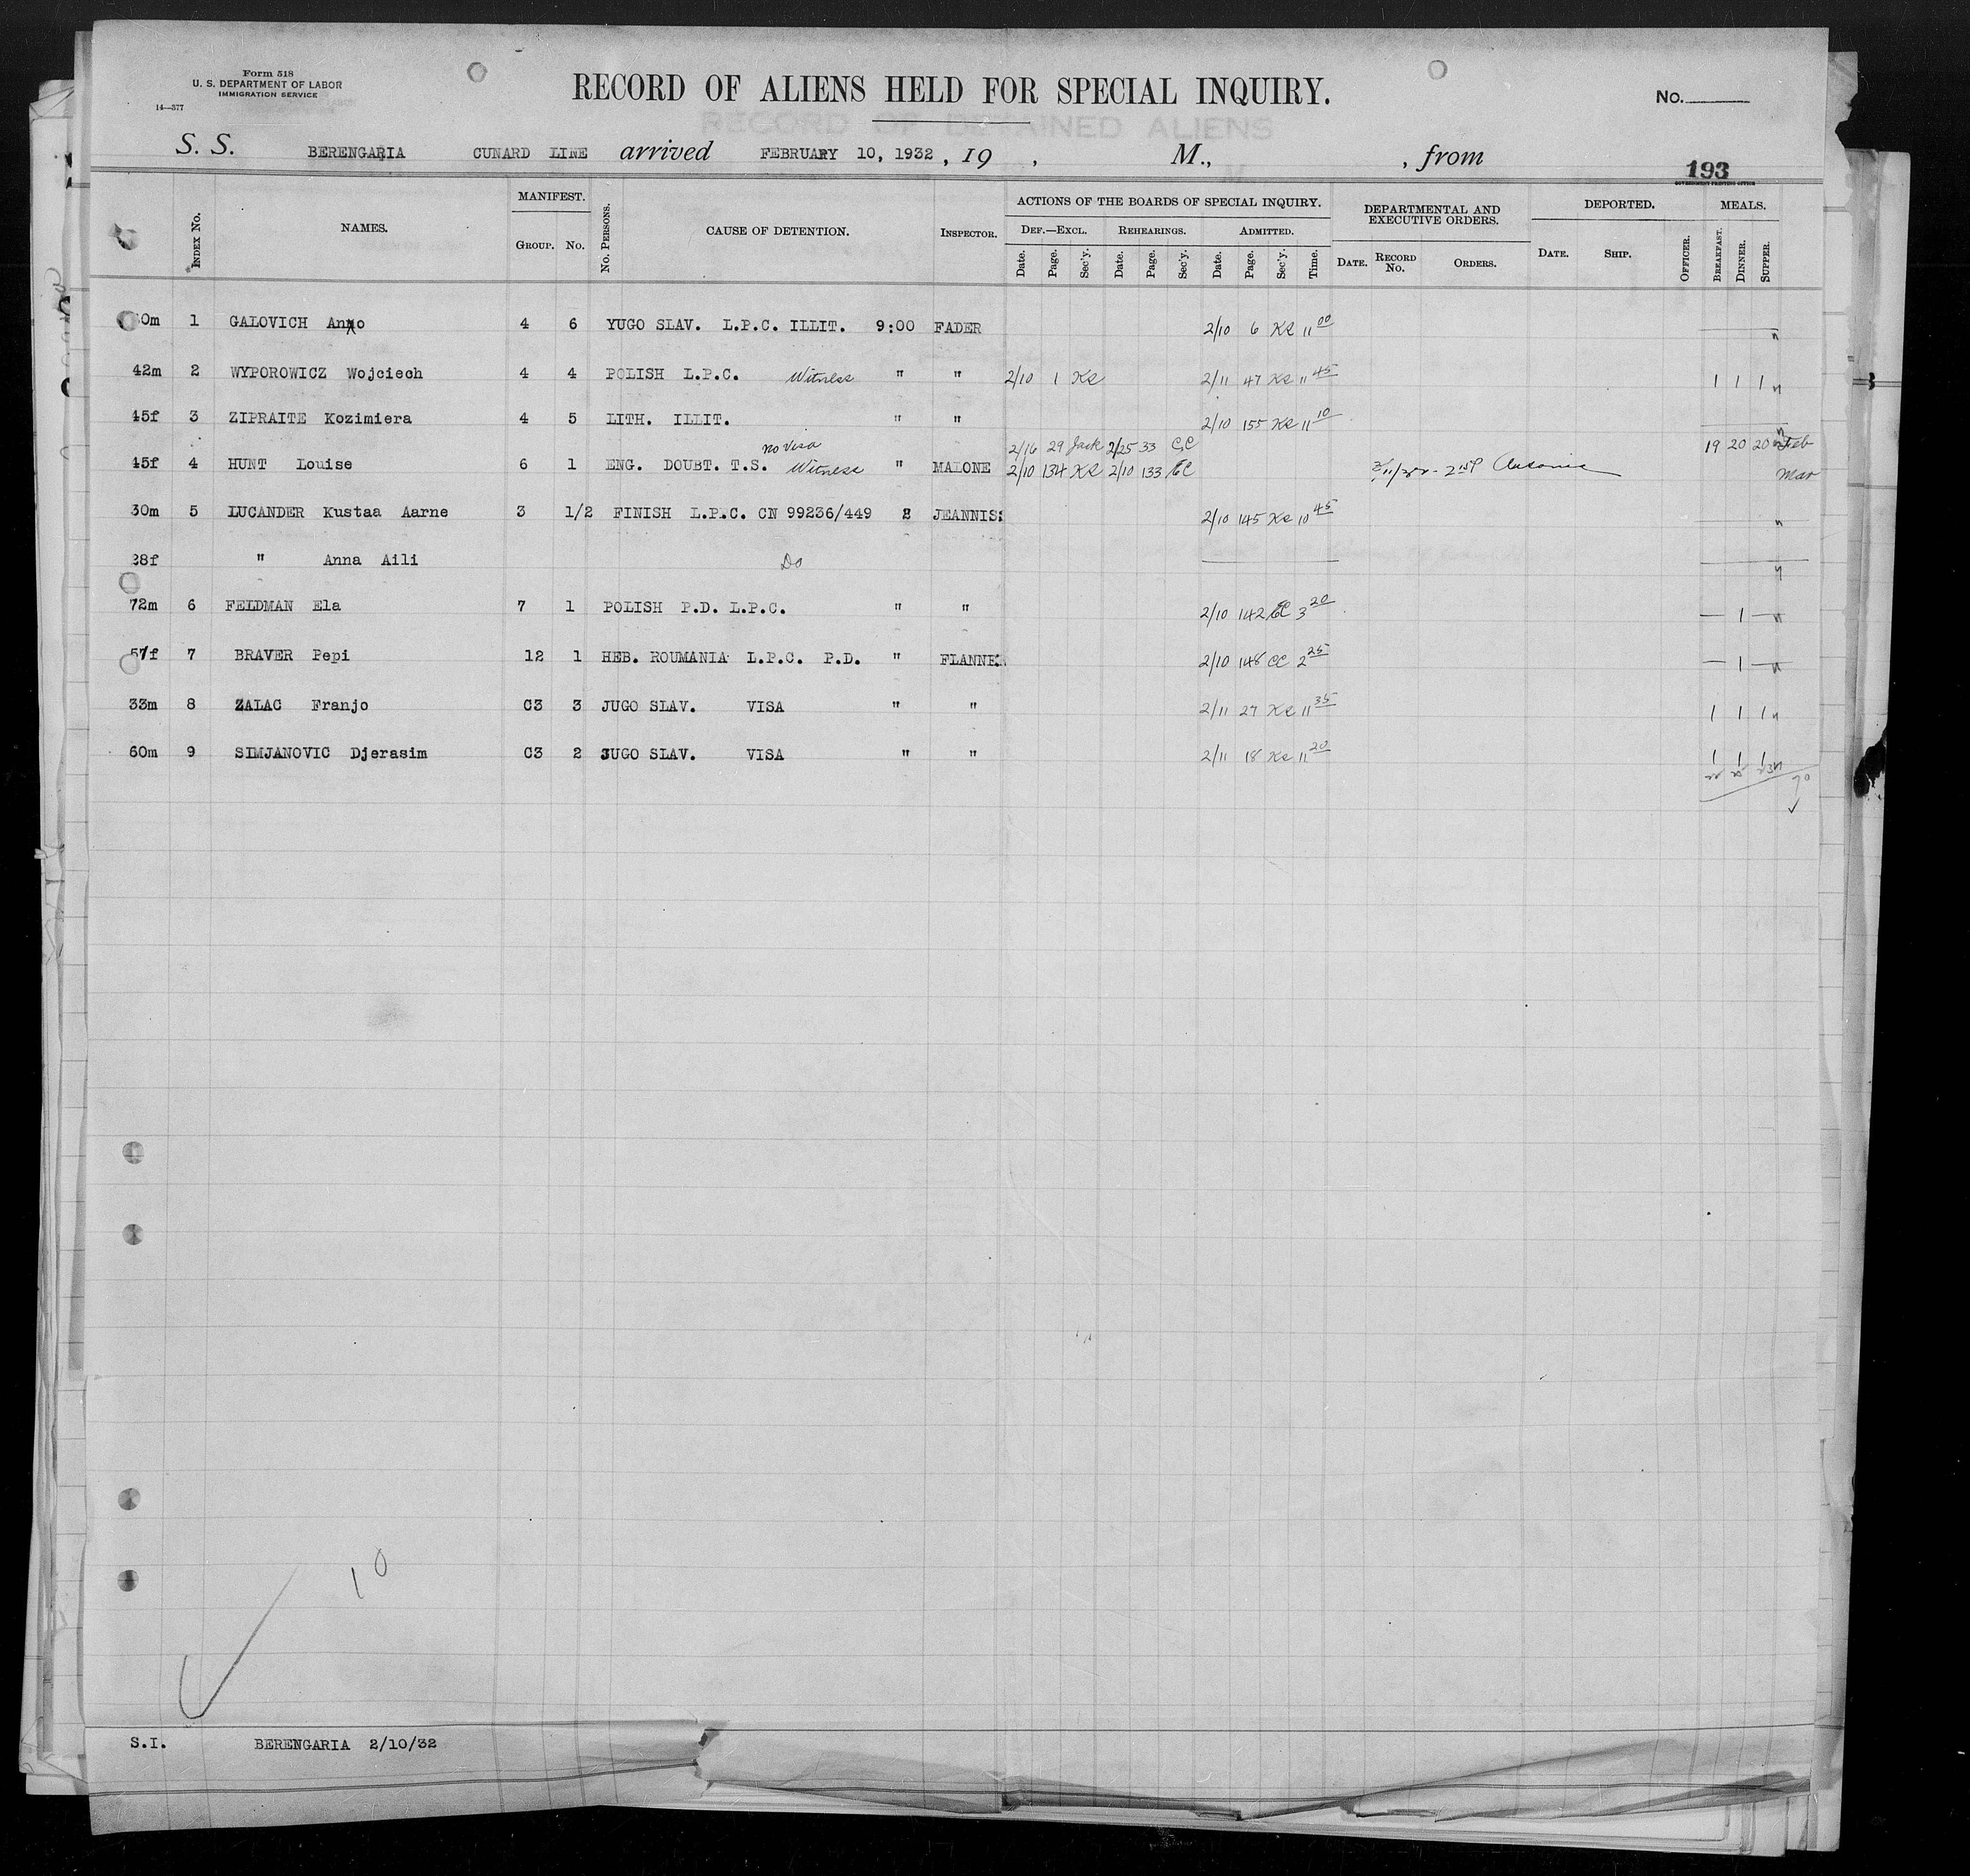 Form 518
U. S. DEPARTMENT OF LABOR
IMMIGRATION SERVICE
14—377
RECORD OF ALIENS HELD FOR SPECIAL INQUIRY.
No.
RECORD OF DETAINED ALIENS
S. S. BERENGARIA CUNARD LINE arrived FEBRUARY 10, 1932, 19 , M., , from
193
GOVERNMENT PRINTING OFFICE
INDEX No. NAMES. MANIFEST. GROUP. No. No. PERSONS. CAUSE OF DETENTION. INSPECTOR. ACTIONS OF THE BOARDS OF SPECIAL INQUIRY. DEPARTMENTAL AND EXECUTIVE ORDERS. DEPORTED. MEALS.
DEF.—EXCL. REHEARINGS. ADMITTED.
Date. Page. Sec'y. Date. Page. Sec'y. Date. Page. Sec'y. Time. DATE. RECORD No. ORDERS. DATE. SHIP. OFFICER. BREAKFAST. DINNER. SUPPER.
0m 1 GALOVICH Anno 4 6 YUGO SLAV. L.P.C. ILLIT. 9:00 FADER 2/10 6 KR 11 00
42m 2 WYPOROWICZ Wojciech 4 4 POLISH L.P.C. Witness " " 2/10 1 KR 2/11 47 KR 11 45 1 1 1
45f 3 ZIPRAITE Kozimiera 4 5 LITH. ILLIT. " " 2/10 155 KR 11 10
no visa 2/16 29 Jack 2/25 33 CC 19 20 20 Feb
45f 4 HUNT Louise 6 1 ENG. DOUBT. T.S. Witness " MALONE 2/10 134 KR 2/10 133 EC Mar
30m 5 LUCANDER Kustaa Aarne 3 1/2 FINISH L.P.C. CN 99236/449 2 JEANNIS 2/10 145 KR 10 45
28f " Anna Aili Do
72m 6 FELDMAN Ela 7 1 POLISH P.D. L.P.C. " " 2/10 142 EC 3 20 — 1 —
57f 7 BRAVER Pepi 12 1 HEB. ROUMANIA L.P.C. P.D. " FLANNE 2/10 148 CC 2 25 — 1 —
33m 8 ZALAC Franjo C3 3 JUGO SLAV. VISA " " 2/11 27 KR 11 35 1 1 1
60m 9 SIMJANOVIC Djerasim C3 2 JUGO SLAV. VISA " " 2/11 18 KR 11 20 1 1 1
10
S.I. BERENGARIA 2/10/32